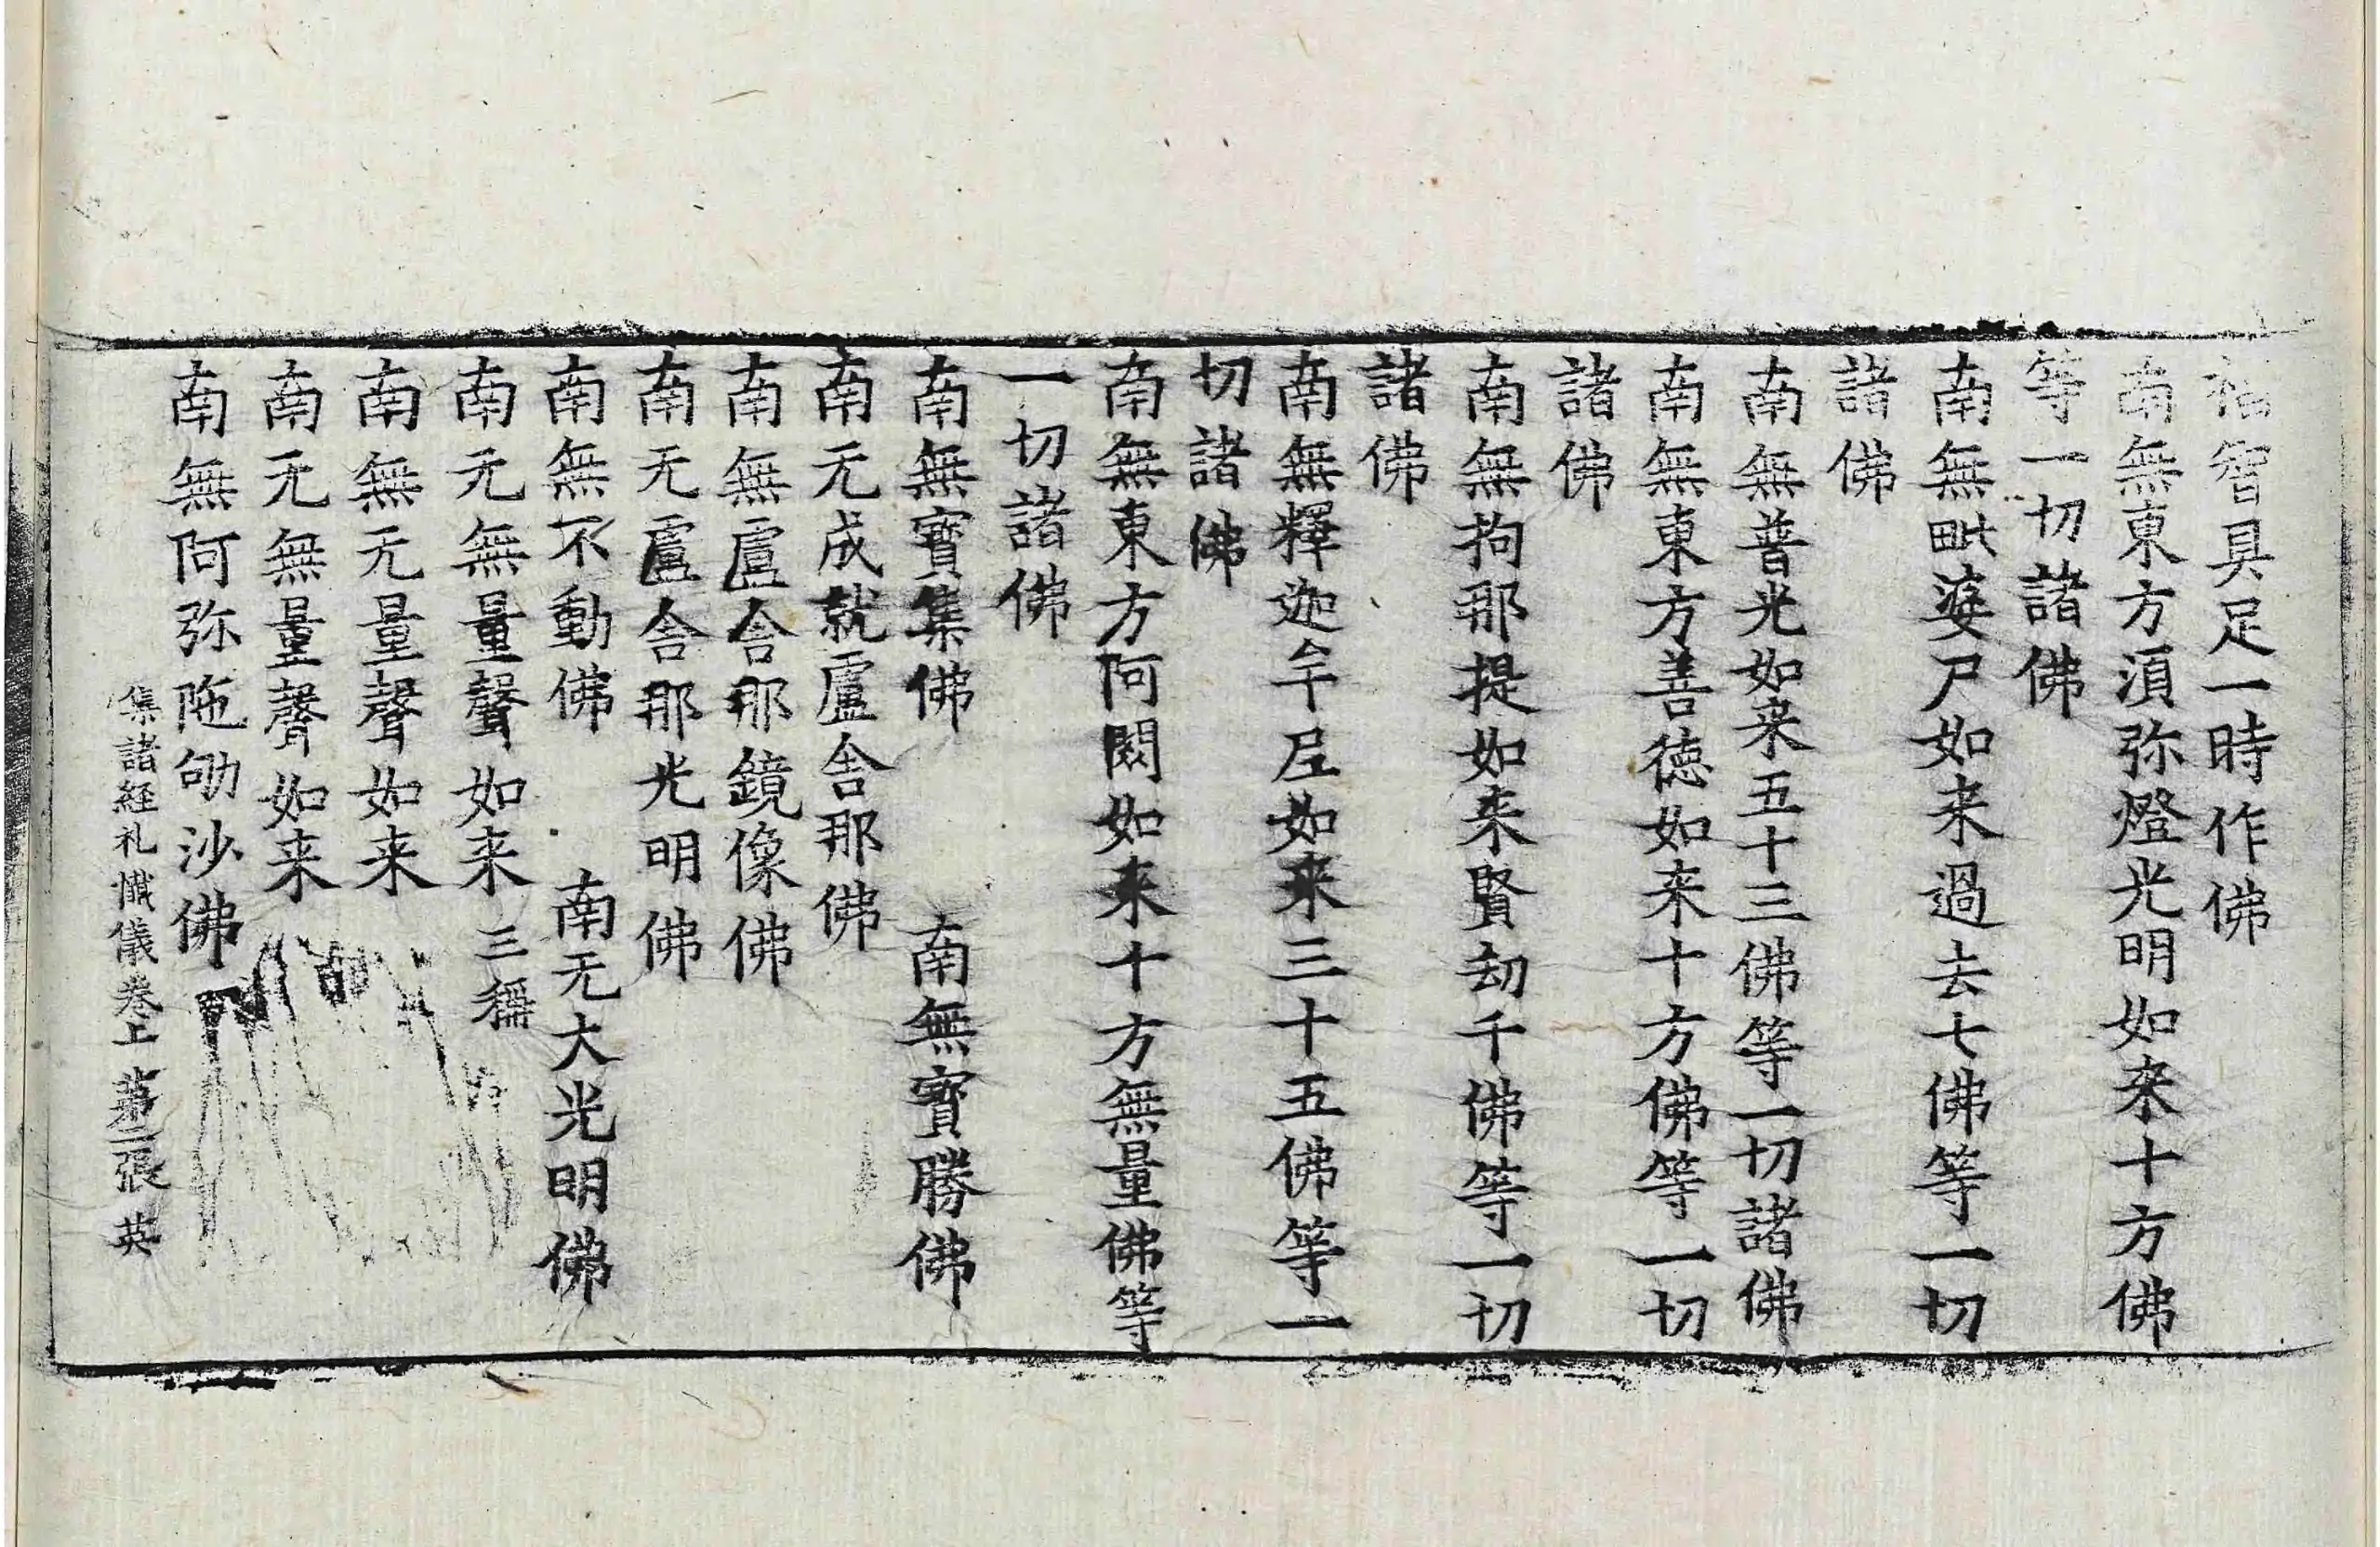 福智具足一時作佛
南無東方湏弥燈光明如来十方佛
等一切諸佛
南無毗婆尸如来過去七佛等一切
諸佛
南無普光如来五十三佛等一切諸佛
南無東方善德如来十方佛等一切
諸佛
南無拘那提如来賢刧千佛等一切
諸佛
南無釋迦牟𡰱如来三十五佛等一
切諸佛
南無東方阿閦如来十方無量佛等
一切諸佛
南無寶集佛 南無寶勝佛
南无成就盧舍那佛
南無盧舍那鏡像佛
南无盧舍那光明佛
南無不動佛 南无大光明佛
南无無量聲如来 三稱
南無无量聲如来
南无無量聲如来
南無阿弥陁劬沙佛
集諸経礼懺儀卷上 第二張 英